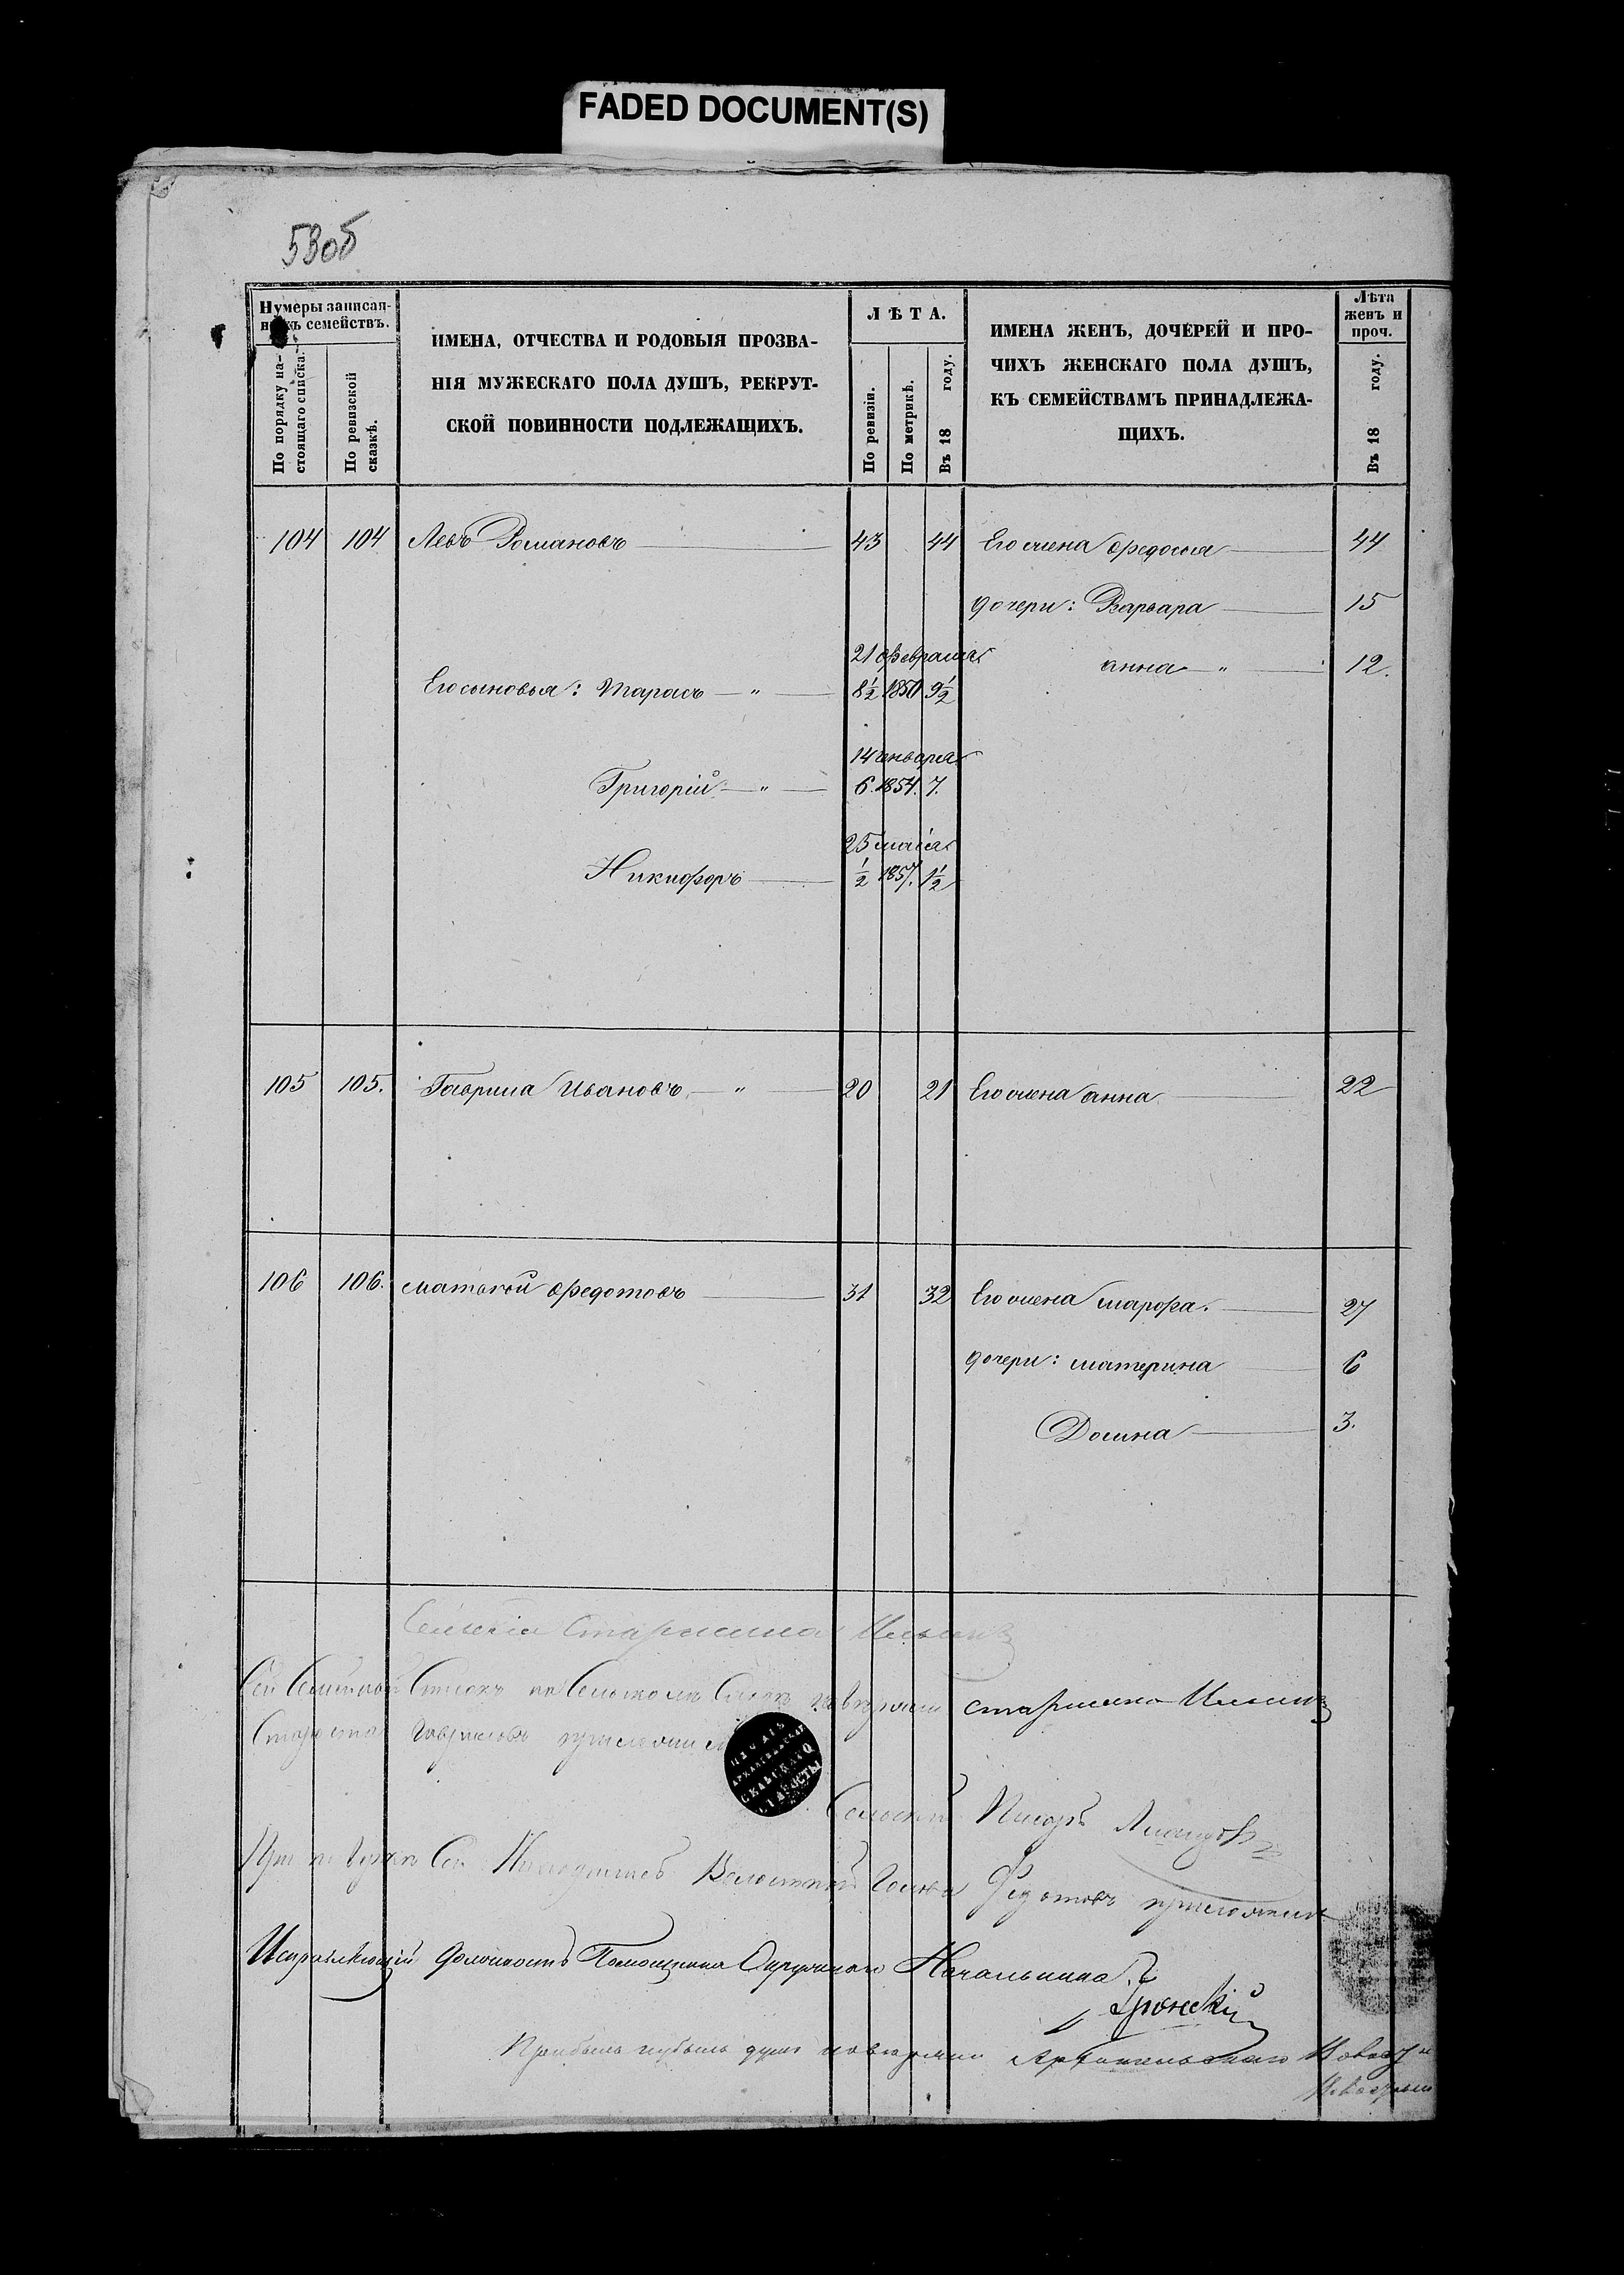 FADED DOCUMENT(S)
530б
Нумеры записан-
ныхъ семействъ.
По порядку на-
стоящаго списка.
По ревизской
сказкѣ.
ИМЕНА, ОТЧЕСТВА И РОДОВЫЯ ПРОЗВА-
НІЯ МУЖЕСКАГО ПОЛА ДУШЪ, РЕКРУТ-
СКОЙ ПОВИННОСТИ ПОДЛЕЖАЩИХЪ.
ЛѢТА.
По ревизіи.
По метрикѣ.
Въ 18 году.
ИМЕНА ЖЕНЪ, ДОЧЕРЕЙ И ПРО-
ЧИХЪ ЖЕНСКАГО ПОЛА ДУШЪ,
КЪ СЕМЕЙСТВАМЪ ПРИНАДЛЕЖА-
ЩИХЪ.
Лѣта
женъ и
проч.
Въ 18 году.
104 104 Левъ Романовъ 43 44 Его жена Федосья 44
дочери: Варвара 15
21 февраля анна " 12.
Его сыновья: Тарасъ " 8½ 1850 9½
14 января
Григорій " 6. 1854. 7.
25 маія
Никифоръ ½ 1857. 1½
105 105. Гаврила Ивановъ " 20 21 Его жена анна 22
106 106. матвей Федотовъ 31 32 Его жена марфа. 27
дочери: катерина 6
Домна 3.
Старшина Ильинъ
Сей Семейной Списокъ на Сельскомъ Сходѣ повѣряли старшина Ильинъ
Староста Гавриловъ
ПЕЧАТЬ
АРХАНГЕЛЬСКАГ
СЕЛЬСКАГО
СТАРОСТЫ
Сельскій Писарь
При повѣркѣ Сей находились Волостной Голова Федотовъ
Исправляющій должность Помощника Окружнаго Начальника
Прибыль и убыль душъ повѣряли Архангельскаго